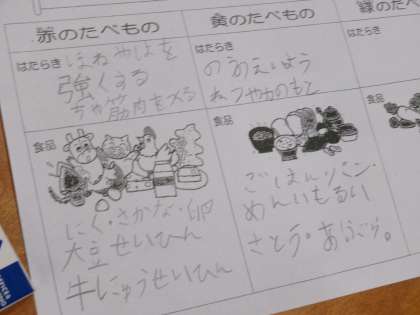 赤のたべもの
はたらき
ほねやはを
強くする
ちや筋肉をつくる
食品
にく・さかな・卵
大豆せいひん
牛にゅうせいひん
黄のたべもの
はたらき
のうのえいよう
ねつやカのもと
食品
ごはん・パン・
めん・いもるい
さとう・あぶら。
緑のたべもの
はたらき
食品